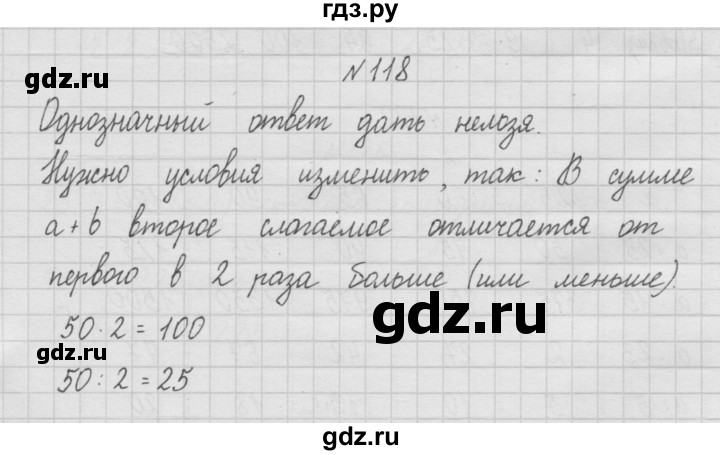 гдз.ру
gdz.ru
№ 118
Однозначный ответ дать нельзя.
Нужно условия изменить, так: В сумме
a + b второе слагаемое отличается от
первого в 2 раза больше (или меньше).
gdz.ru
50 · 2 = 100
gdz.ru
50 : 2 = 25
gdz.ru